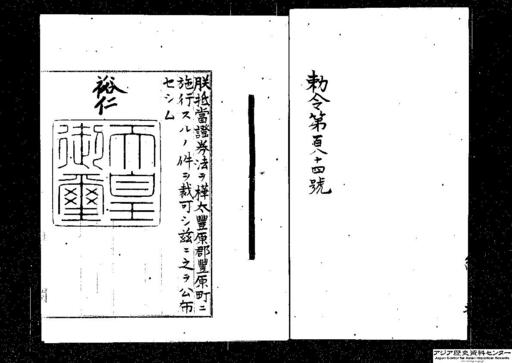 勅令第百八十四號
朕抵當證券法ヲ樺太豐原郡豐原町ニ
施行スルノ件ヲ裁可シ茲ニ之ヲ公布
セシム
裕仁
天皇
御璽
アジア歴史資料センター
Japan Center for Asian Historical Records